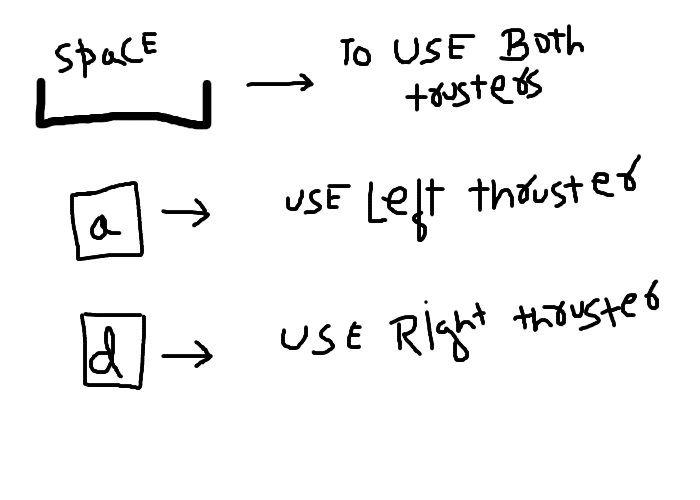 SpaCE
To USE Both
trusters
a
USE Left thruster
d
USE Right thruster